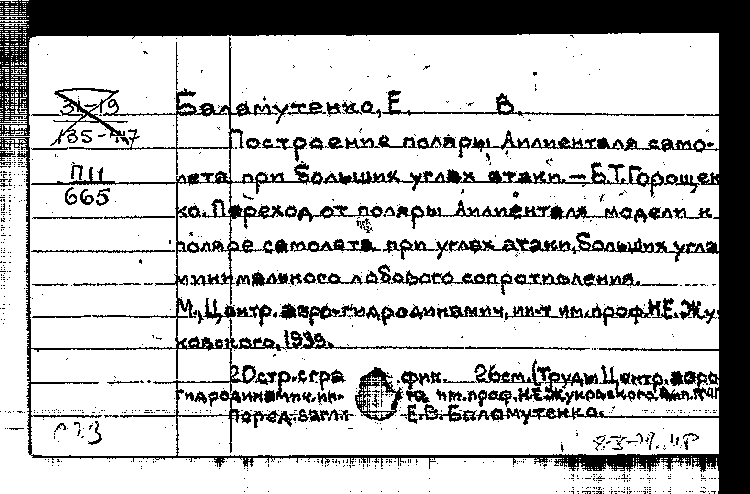 31-19
135-47
П11
665
Баламутенко, Е. В.
Построение поляры Лилиенталя само-
лета при больших углах атаки. — Б.Т.Горощен
ко. Переход от поляры Лилиенталя модели к
поляре самолета при углах атаки, больших угла
минимального лобового сопротивления.
М., Центр. аэро-гидродинамич. ин-т им. проф. Н.Е. Жу
ковского, 1935.
20стр. с гра фик. 26см. (Труды Центр. аэро
гидродинамич. ин- та им. проф. Н.Е. Жуковского. Вып.
Перед загл Е.В. Баламутенко.